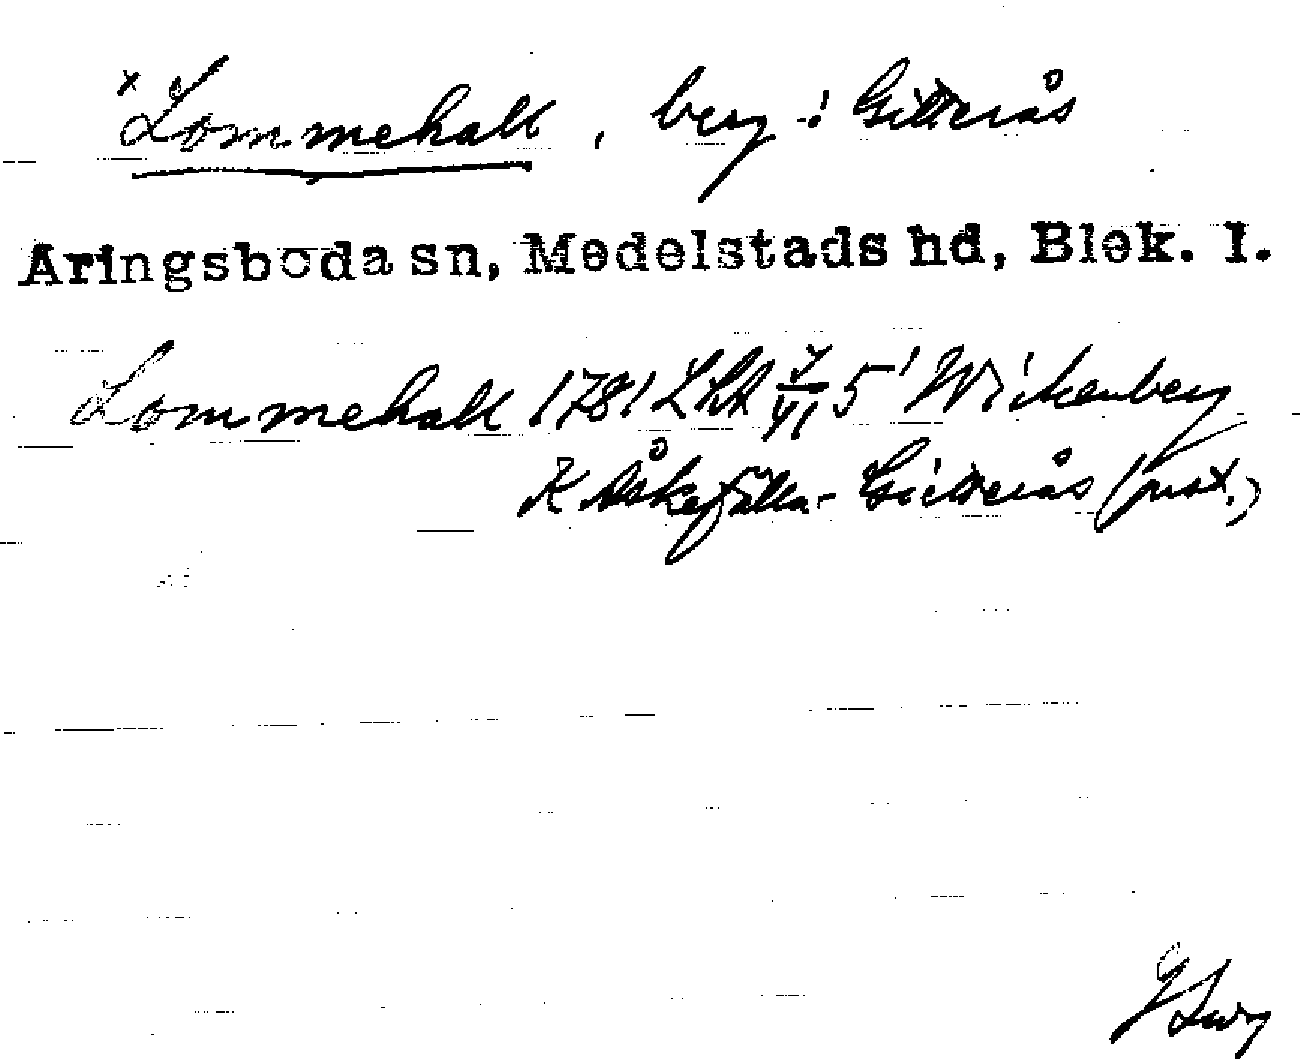 x Lommehall, berg i Gitterås
Aringsboda sn, Medelstads hd, Blek. l.
Lommehall 1781 LSA Wickenberg
K Åskefälla - Gitterås (prot.)